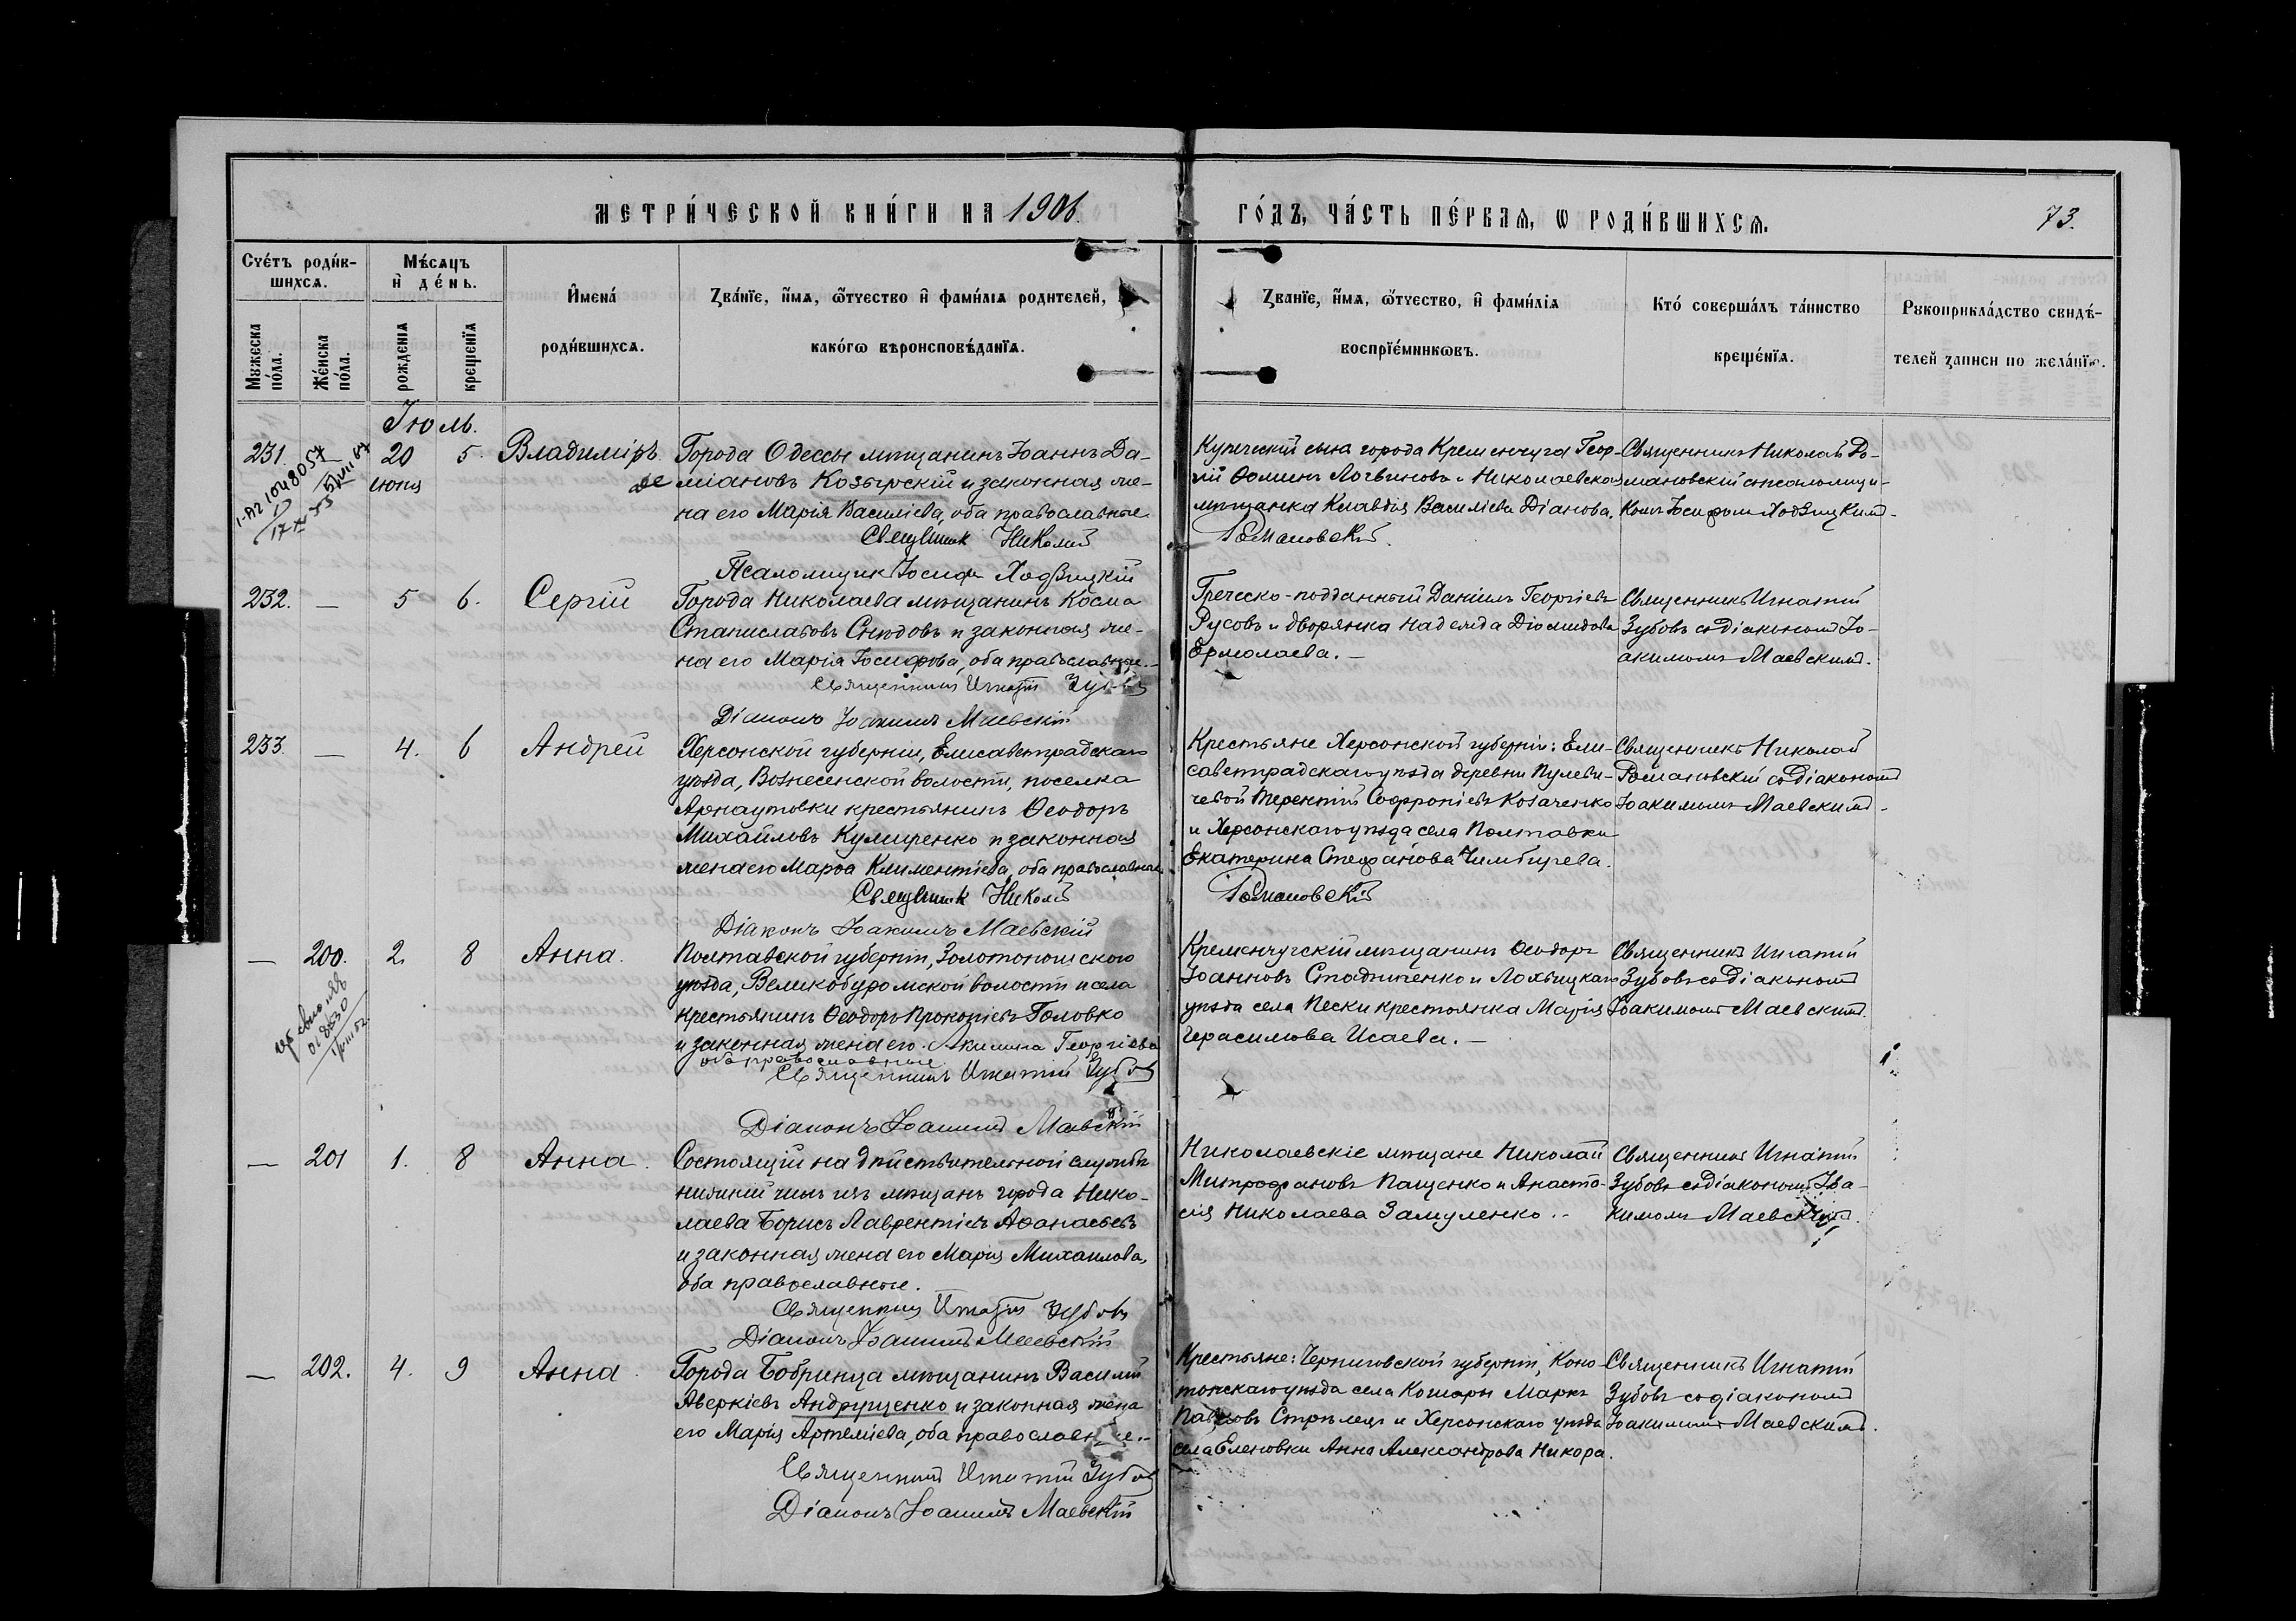 МЕТРИ́ЧЕСКОЙ КНИ́ГИ НА 1906. ГО́ДЪ, ЧА́СТЬ ПЕ́РВАЯ, Ѡ РОДИ́ВШИХСЯ. 73.
Сче́тъ роди́в-
шихся.
Му́жеска
по́ла.
Же́нска
по́ла.
Мѣ́сяцъ
и҆ де́нь.
рожденїя
крещенїя
И҆мена́
роди́вшихся.
Зва́нїе, и҆́мя, ѻ҆́тчество и҆ фами́лїя родителей,
како́гѡ вѣроисповѣ́данїя.
Зва́нїе, и҆́мя, ѻ҆́тчество, и҆ фами́лїя
воспрїе́мникѡвъ.
Кто́ соверша́лъ та́инство
креще́нїя.
Рꙋкоприкла́дство свидѣ́-
телей записи по жела́нїю.
Іюль.
231. — 20 5. Владиміръ.
июня
Города Одессы мѣщанинъ Іоаннъ Да-
міановъ Козырскій и законная же-
на его Марія Василіева, оба православные.
Священник Николай
Романовскій.
Псаломщик Іосиф Ходзицкій
Купеческій сынъ города Кременчуга Геор-
гій Ѳоминъ Логвиновъ и Николаевская
мѣщанка Клавдія Василіева Діанова.
Священникъ Николай Ро-
мановскій съ псаломщи-
комъ Іосифомъ Ходзицкимъ.
232. — 5 6. Сергій
Города Николаева мѣщанинъ Косма
Станиславовъ Снѣдовъ и законная же-
на его Марія Іосифова, оба православные.—
Священникъ Игнатій Зубовъ
Діаконъ Іоакимъ Маевскій
Греческо-подданный Даніилъ Георгіевъ
Русовъ и дворянка Надежда Діомидова
Ермолаева.—
Священникъ Игнатій
Зубовъ съ діакономъ Іо-
акимомъ Маевскимъ.
233. — 4. 6 Андрей
Херсонской губерніи, Елисаветградскаго
уѣзда, Вознесенской волости, поселка
Арнаутовки крестьянинъ Ѳеодоръ
Михайловъ Кулиренко и законная
жена его Марѳа Климентіева, оба православные
Священник Николай
Романовскій
Діаконъ Іоакимъ Маевскій
Крестьяне Херсонской губерніи: Ели-
саветградскаго уѣзда деревни Пулеви-
чевой Терентій Софроніевъ Козаченко
и Херсонскаго уѣзда села Полтавки
Екатерина Стефанова Чимбурева.
Священникъ Николай
Романовскій съ діакономъ
Іоакимомъ Маевскимъ.
— 200. 2. 8 Анна.
Полтавской губерніи, Золотоношского
уѣзда, Великобуромской волости и села
крестьянинъ Ѳеодоръ Прокопіевъ Головко
и законная жена его Акилина Георгіева
оба православные
Священникъ Игнатій Зубовъ
Діаконъ Іоакимъ Маевскій
Кременчугскій мѣщанинъ Ѳеодоръ
Іоанновъ Стадниченко и Лохвицкаго
уѣзда села Пески крестьянка Марія
Герасимова Исаева.—
Священникъ Игнатій
Зубовъ съ діакономъ
Іоакимомъ Маевскимъ.
— 201 1. 8 Анна.
Состоящій на дѣйствительной службѣ
нижній чинъ изъ мѣщанъ города Нико-
лаева Борисъ Лаврентіевъ Аѳанасьевъ
и законная жена его Марія Михаилова,
оба православные.
Священникъ Игнатій Зубовъ
Діаконъ Іоакимъ Маевскій
Николаевскіе мѣщане Николай
Митрофановъ Пащенко и Анаста-
сія Николаева Замуленко.—
Священникъ Игнатій
Зубовъ съ діакономъ Іоа-
кимомъ Маевскимъ.
— 202. 4. 9 Анна.
Города Бобринца мѣщанинъ Василій
Аверкіевъ Андрущенко и законная жена
его Марія Артеміева, оба православные.—
Священникъ Игнатій Зубовъ
Діаконъ Іоакимъ Маевскій
Крестьяне: Черниговской губерніи, Коно-
топскаго уѣзда села Кошары Маркъ
Павловъ Стрѣлецъ и Херсонскаго уѣзда
села Еленовки Анна Александрова Никора.
Священникъ Игнатій
Зубовъ съ діакономъ
Іоакимомъ Маевскимъ.